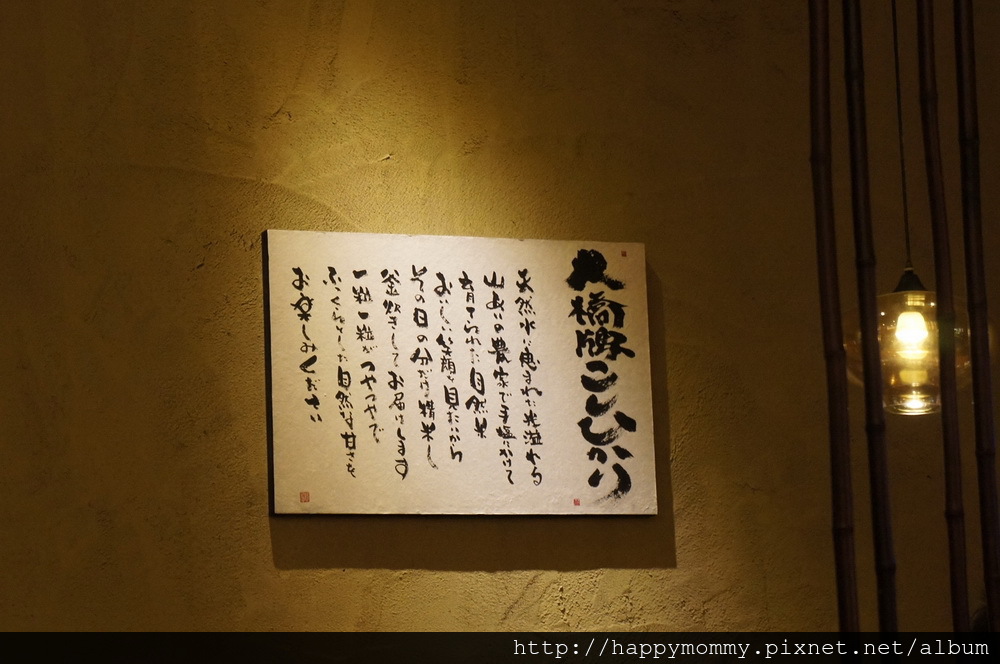 大橋牌こしひかり
天然水に恵まれた光溢れる
山あいの農家で手塩にかけて
育てられた自然米
おいしい笑顔が見たいから
その日の分だけ精米し
釜炊きしてお届けします
一粒一粒がつやつやで
ふっくらとした自然な甘さを
お楽しみください
http://happymommy.pixnet.net/album